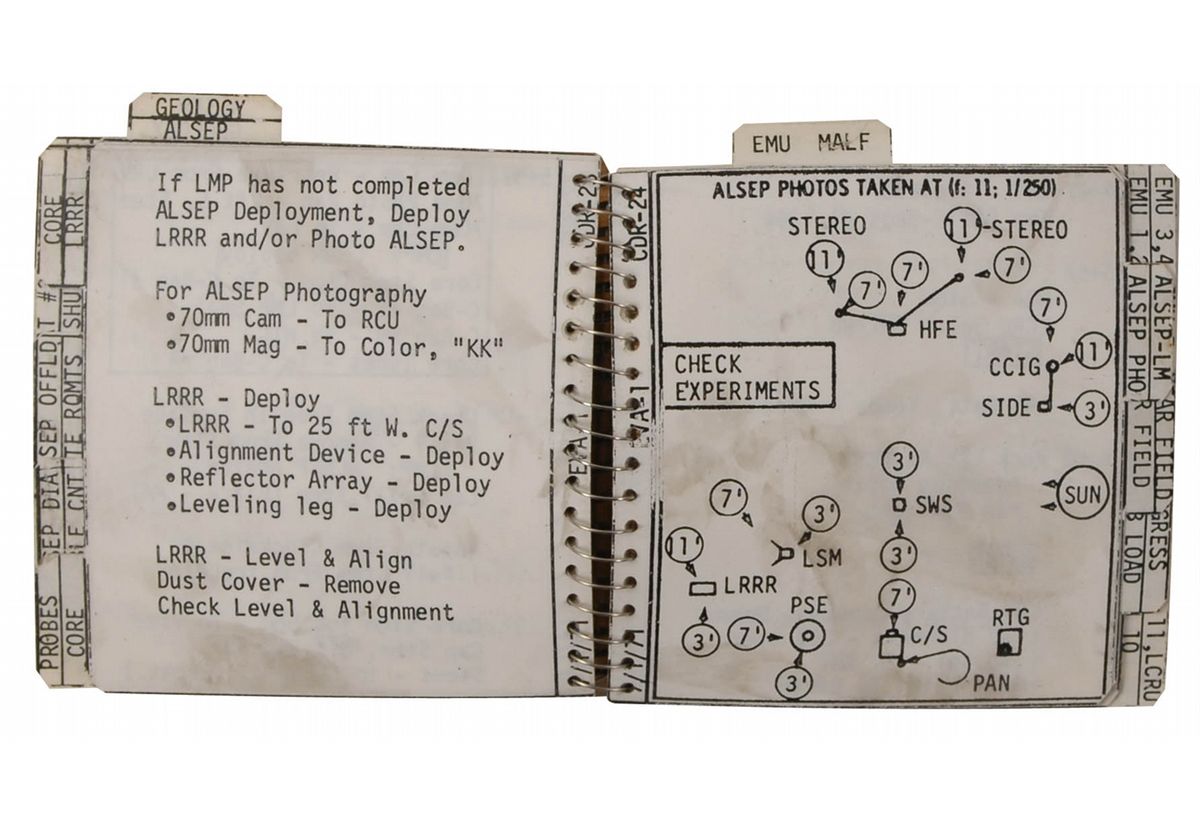 GEOLOGY
ALSEP
If LMP has not completed
ALSEP Deployment, Deploy
LRRR and/or Photo ALSEP.
For ALSEP Photography
•70mm Cam - To RCU
•70mm Mag - To Color, "KK"
LRRR - Deploy
•LRRR - To 25 ft W. C/S
•Alignment Device - Deploy
•Reflector Array - Deploy
•Leveling leg - Deploy
LRRR - Level & Align
Dust Cover - Remove
Check Level & Alignment
CORE
LRRR
PROBES
CORE
CDR-24
EMU MALF
ALSEP PHOTOS TAKEN AT (f: 11; 1/250)
STEREO
11'-STEREO
11'
7'
7'
7'
HFE
7'
CCIG
11'
SIDE
3'
CHECK
EXPERIMENTS
3'
SWS
3'
SUN
7'
3'
LSM
11'
LRRR
3'
PSE
7'
3'
7'
C/S
PAN
RTG
EMU 3,4
ALSEP-LM
EMU 1,2
ALSEP PHO
R FIELD
LOAD
10
11,LCRU